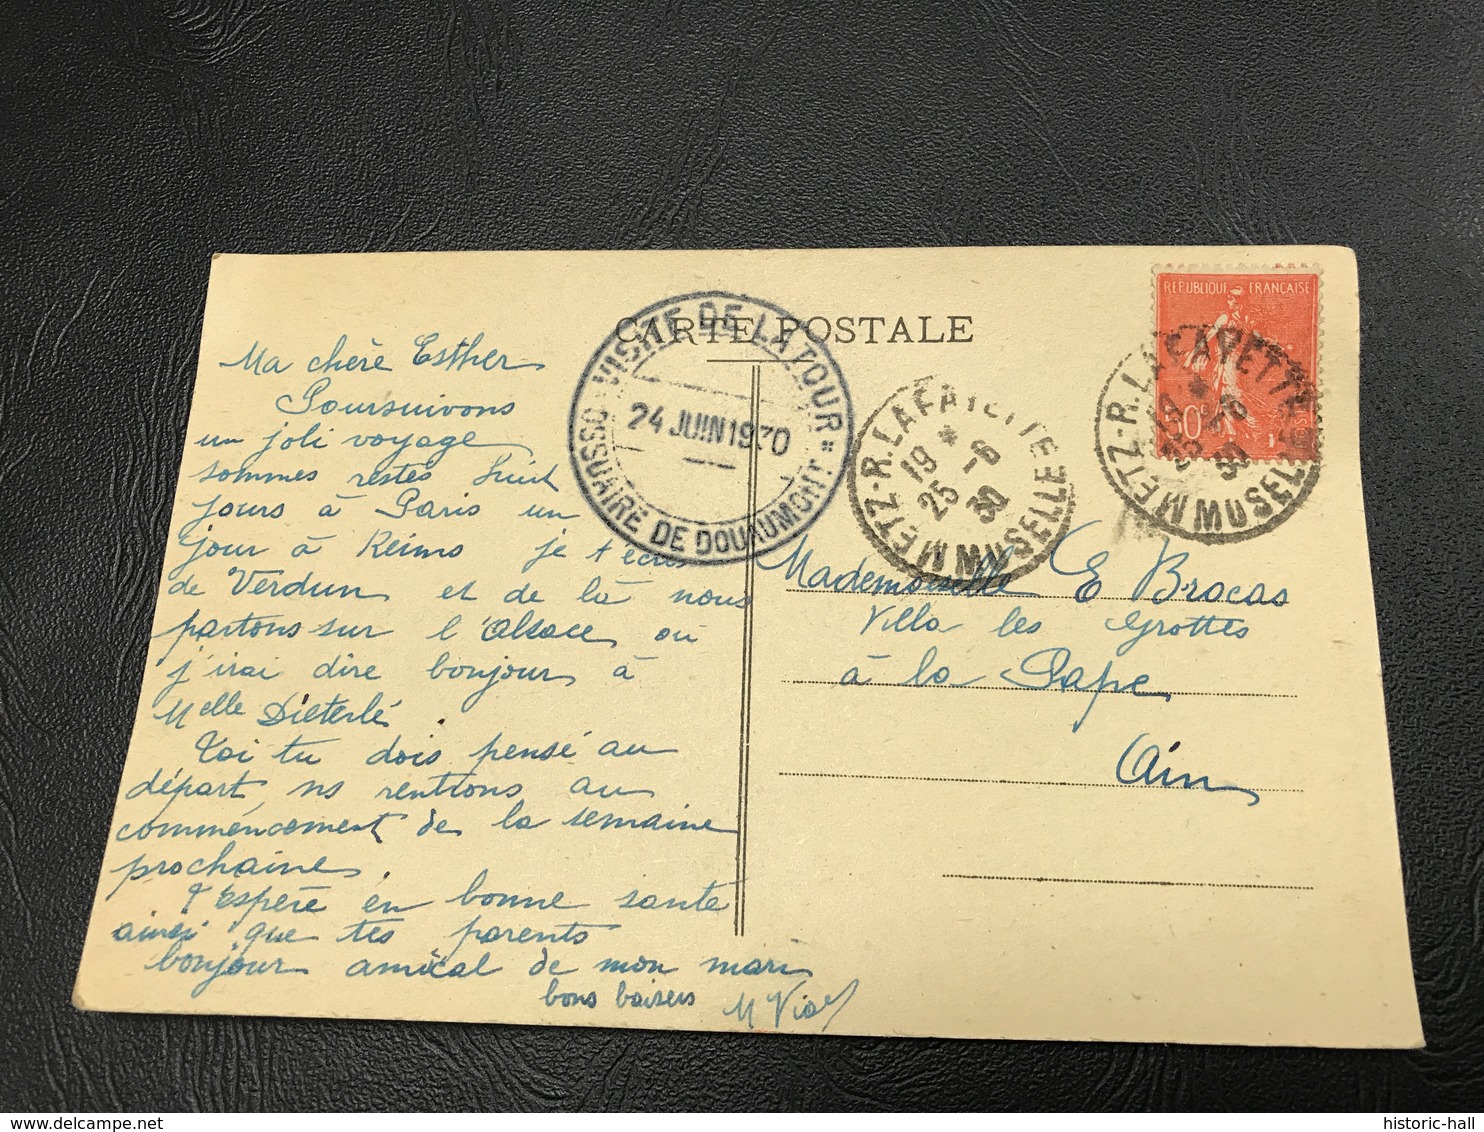 CARTE POSTALE
Ma chère Esther
Poursuivons
un joli voyage
sommes restés huit
jours à Paris un
jour à Reims je t'écris
de Verdun et de là nous
partons sur l'Alsace où
j'irai dire bonjour à
Melle Dieterlé.
Toi tu dois pensé au
départ, ns rentrons au
commencement de la semaine
prochaine.
T'espère en bonne santé
ainsi que tes parents
bonjour amical de mon mari
bons baisers
M Vial
VISITE DE LA TOUR
24 JUIN 1930
OSSUAIRE DE DOUAUMONT
METZ-R.LAFAYETTE
19 * -6
25 30
MMUSELLE
REPUBLIQUE FRANÇAISE
50c
METZ-R.LAFAYETTE
MMUSELLE
Mademoiselle E Bracas
Villa les Grottes
à la Pape
Ain
historic-hall